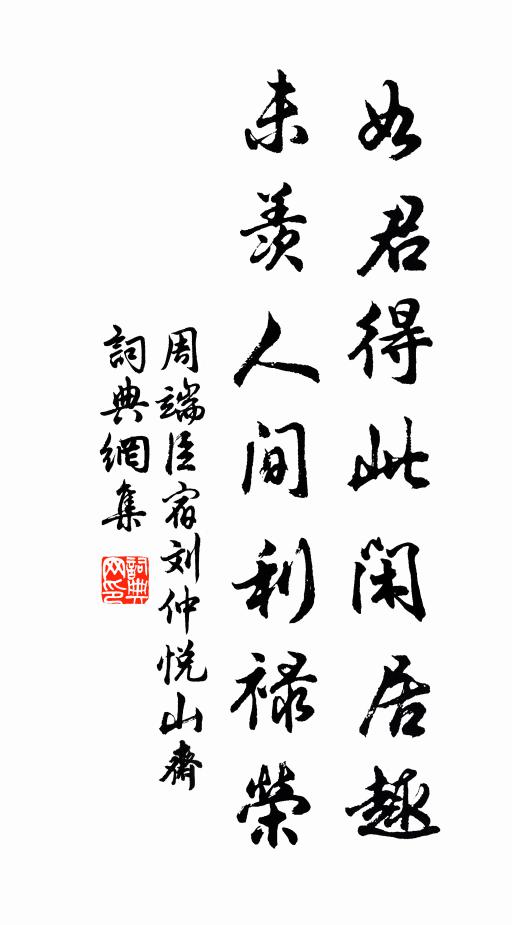 如君得此闲居趣
未羡人间利禄榮
周端臣宿刘仲悦山齋
詞典網集
詞典網印